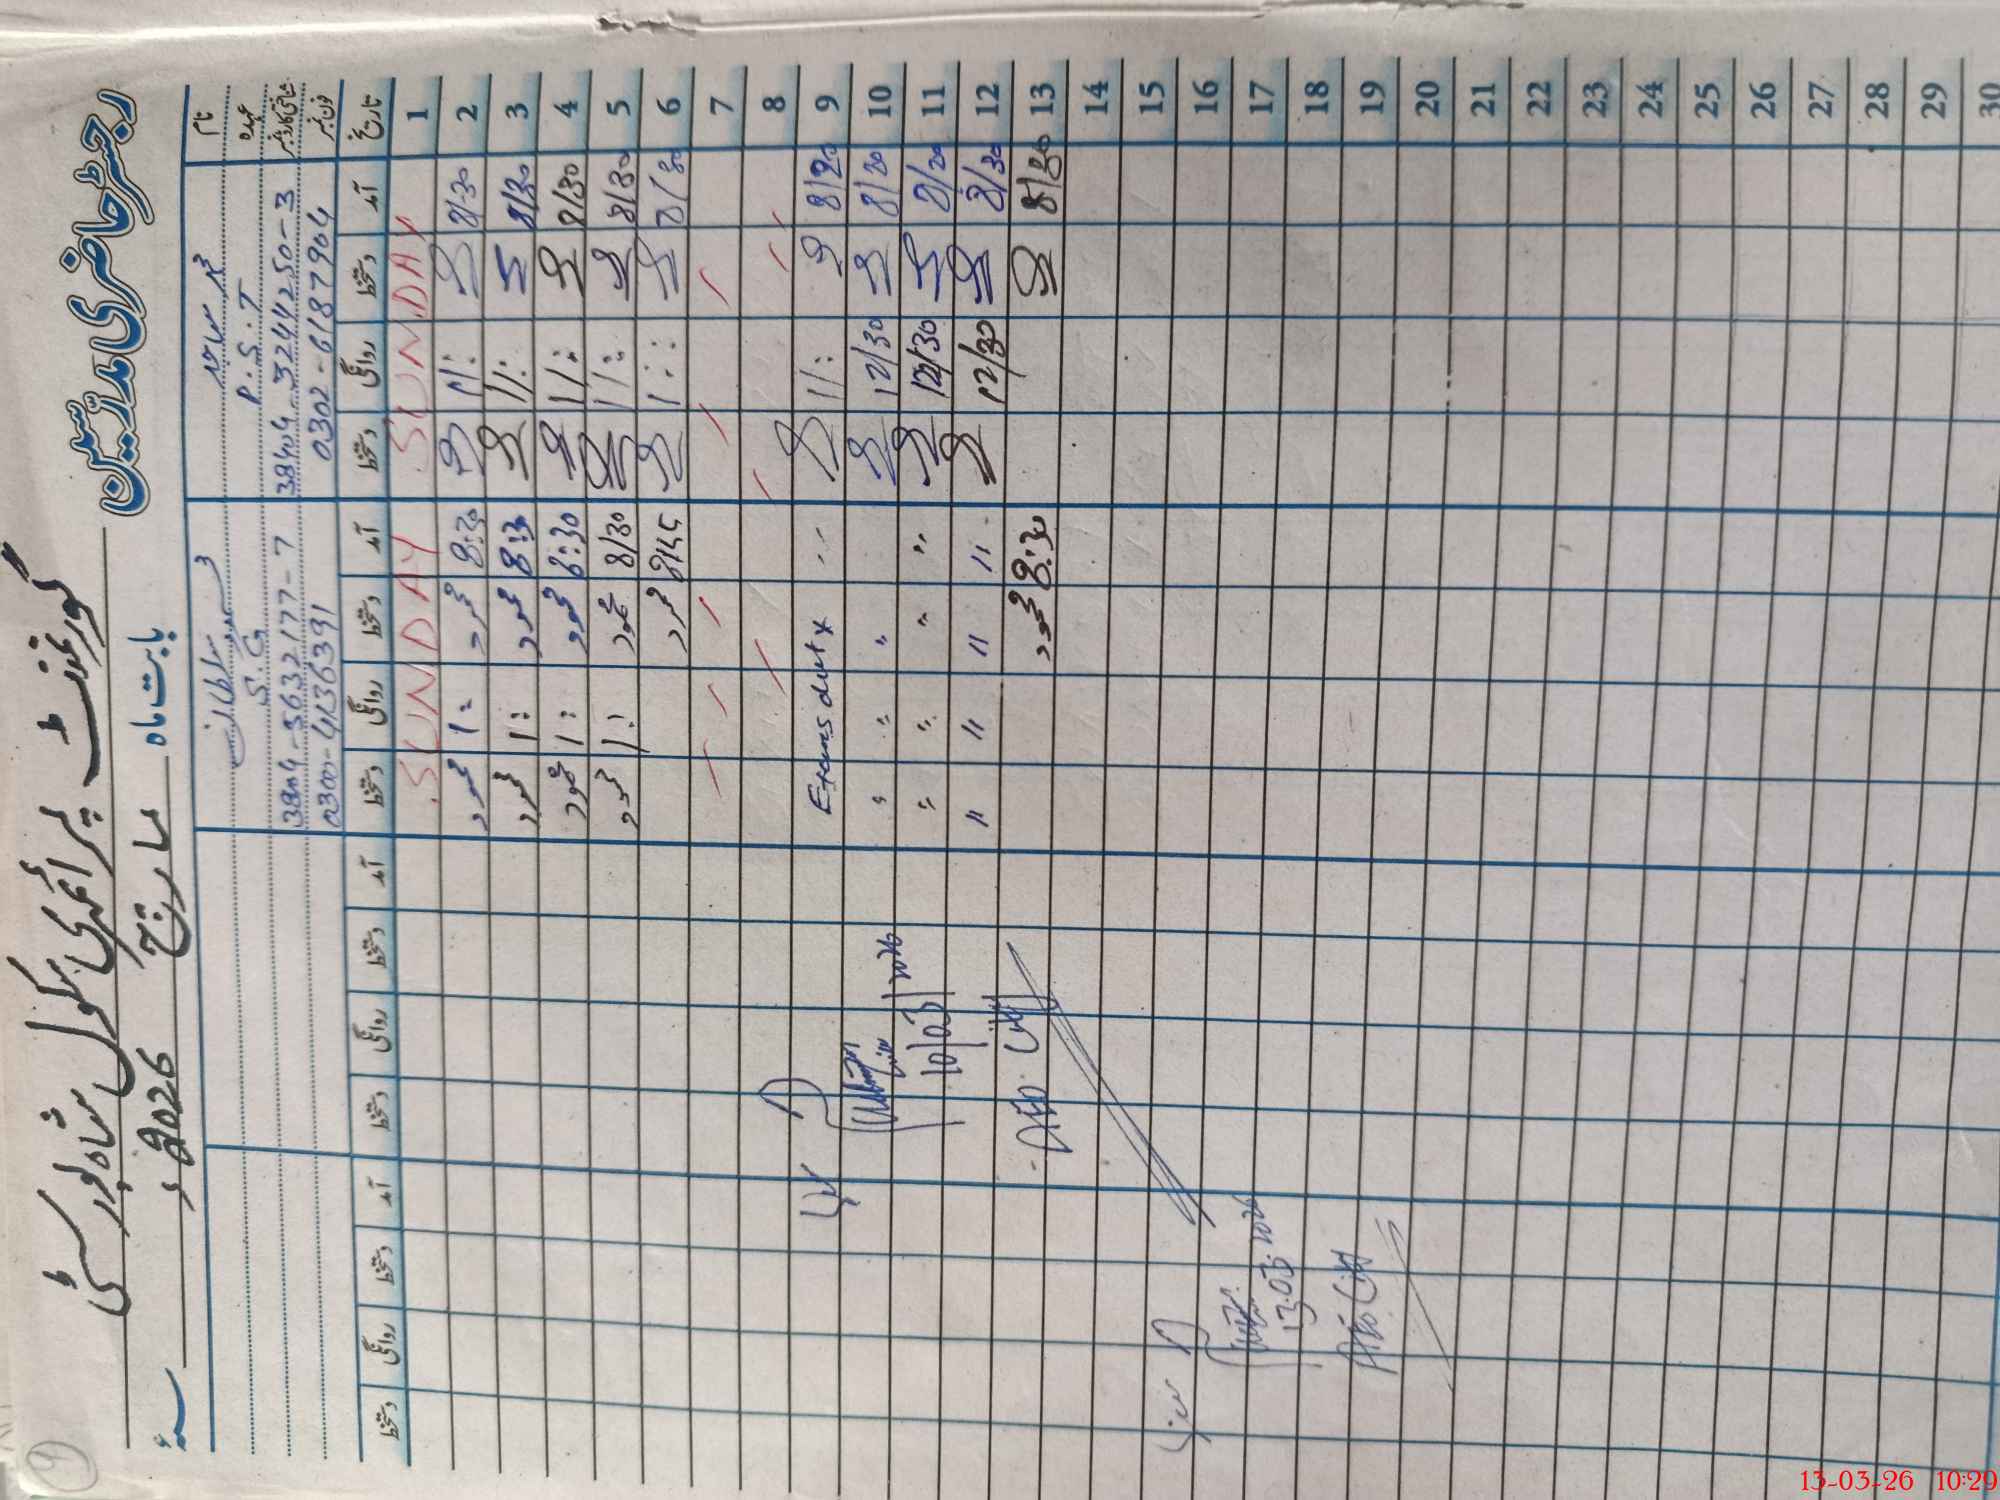 رجسٹر حاضری مدرسین
گورنمنٹ پرائمری سکول شاہ پور سٹی
بابت ماہ مارچ 2026ء
نام محمد ساجد
عہدہ P.S.T S.G
شناختی کارڈ نمبر 38404-3244250-3 38404-3632177-7
فون نمبر 0302-6187904 0300-4136391
تاریخ آمد دستخط روانگی دستخط آمد دستخط روانگی دستخط آمد دستخط روانگی دستخط آمد دستخط روانگی دستخط
1 SUNDAY SUNDAY
2 8/30 11: 8:30 1:
3 8/30 11: 8:30 1:
4 8/30 11: 8:30 1:
5 8/30 11: 8/30 1:
6 8/30 1:: 8/45
7
8
9 8/20 11:
10 8/30 12/30 " " " "
11 8/20 12/30 " " " "
12 8/30 12/30 " " " "
13 8/30 8:30
14
15
16
17
18
19
20
21
22
23
24
25
26
27
28
29
30
10/03/2026
13.03.2026
13-03-26 10:29